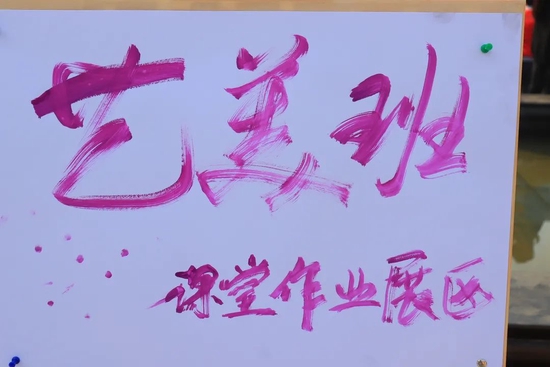 艺美班
课堂作业展区